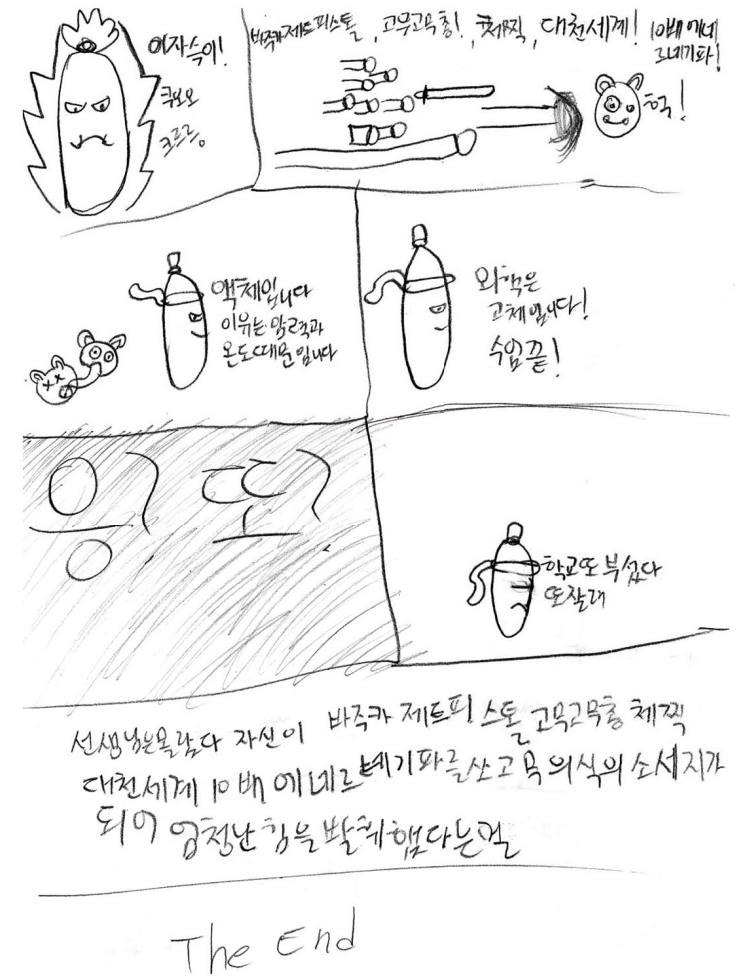 이자숙이!
쿠오오
크르릉
바주카 제트피스톨, 고무고무총!, 채찍, 대천세계! 10배 에네
르네기파!
헉!
액체입니다
이유는 압력과
온도때문입니다
외핵은
고체입니다!
수업끝!
웅?또?
학교또부섰다
또잘래
선생님은몰랐다 자신이 바주카 제트피스톨 고무고무총 채찍
대천세계 10배 에네르네기파를쏘고 무의식의소세지가
되어 엄청난 힘을 발휘했다는걸
The End